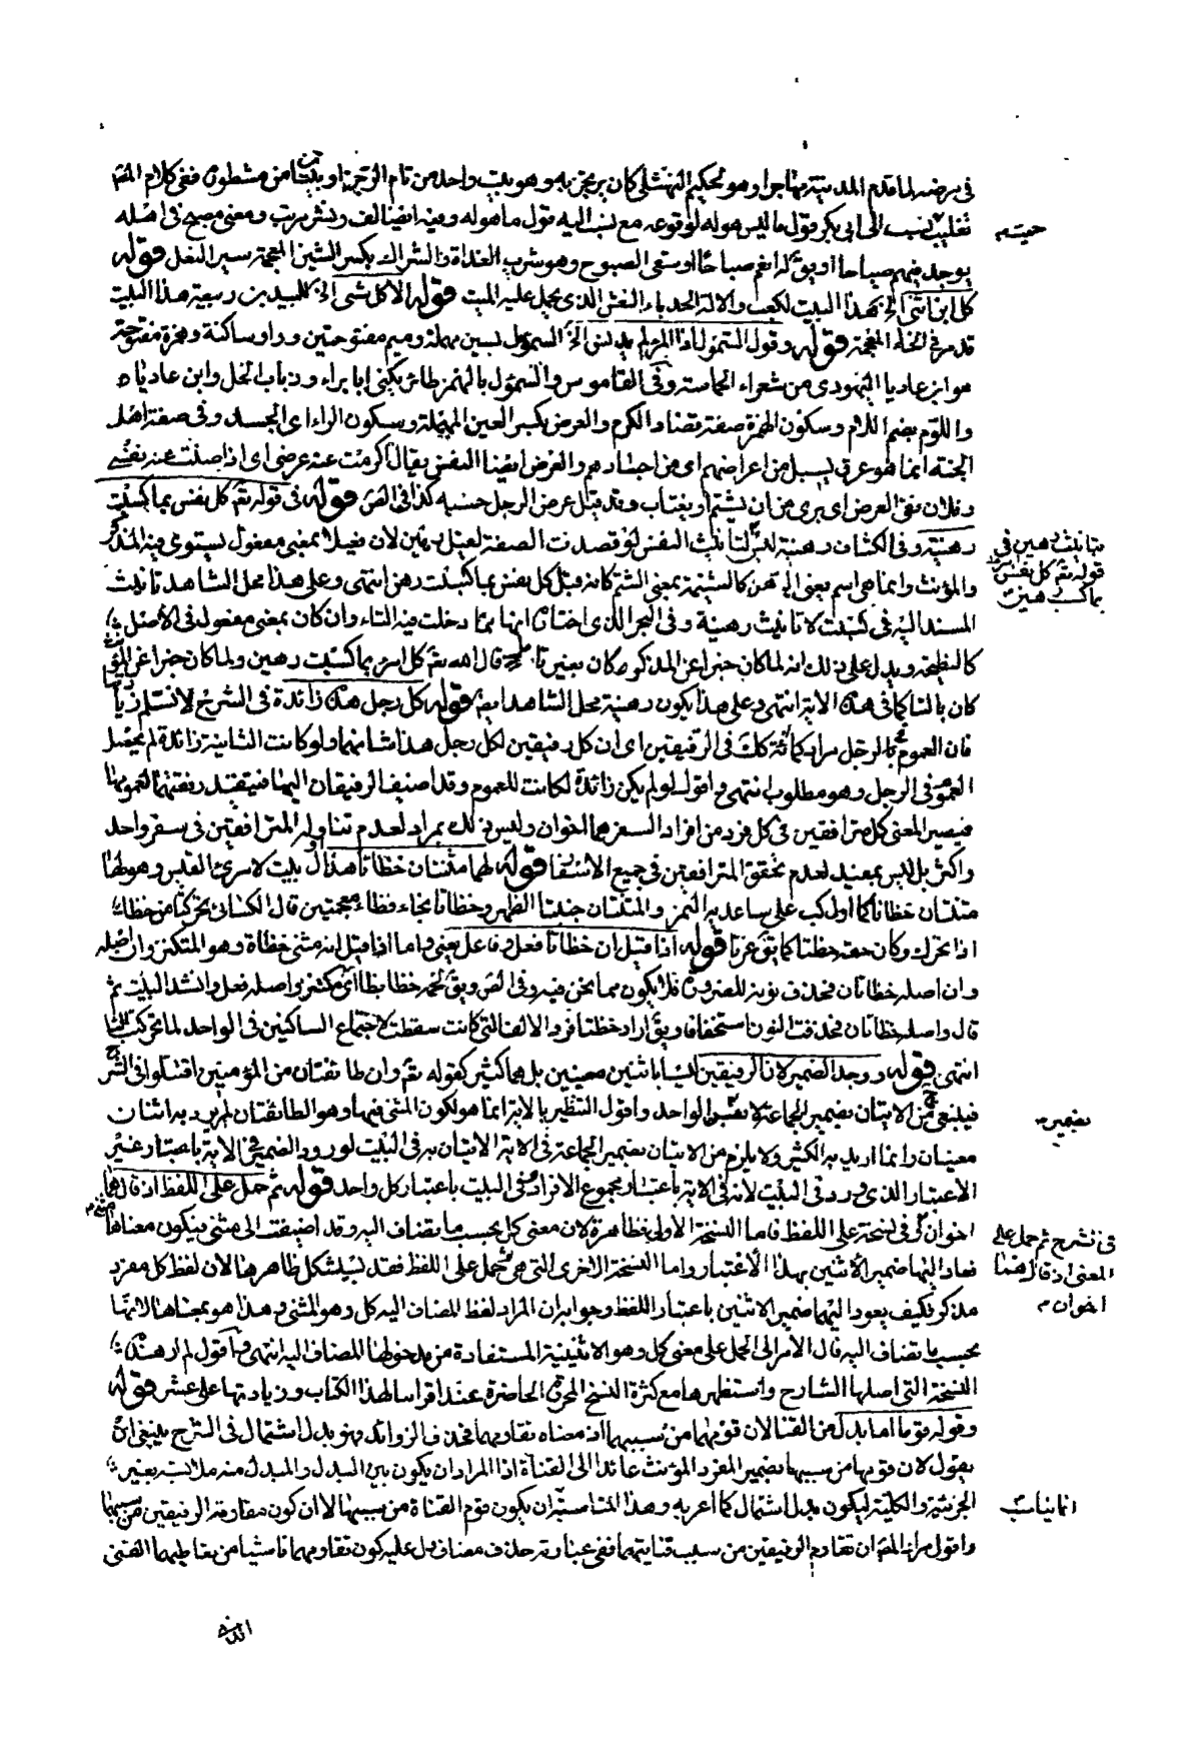 في مرضه لما قدم المدينة مهاجرا وهو لحكيم النهشلي كان يرتجز به وهو بيت واحد من تام الرجز او بيتان من مشطوره ففي كلام المص
تغليب نسب الى ابي بكر قول ما ليس هو له لوقوعه مع نسب اليه قول ما هو له وفيه ايضا لف ونشر مرتب ومعنى مصبح في اهله
يوجد فيهم صباحا او يق له انعم صباحا او سقى الصبوح وهو شرب الغداة والشراك بكسر الشين المعجمة سير النعل قوله
كل ابن انثى الخ هذا البيت لكعب والالة الحدباء النعش الذي يحمل عليه الميت قوله الا كل شيء الخ للبيد بن ربيعة هذا البيت
قد مر في الخاء المعجمة قوله وقول السموأل اذا المرء لم يدنس الخ السموأل بسين مهملة وميم مفتوحتين وواو ساكنة وهمزة مفتوحة
هو ابن عاديا اليهودي من شعراء الحماسة وفي القاموس والسموأل بالهمز طائر يكنى ابا براء وذباب الخل وابن عادياه
واللؤم بضم اللام وسكون الهمزة صفة تضاد الكرم والعرض بكسر العين المهملة وسكون الراء اي الجسد وفي صفة اهل
الجنة انما هو عرق يسيل من اعراضهم اي من اجسادهم والعرض ايضا النفس يقال اكرمت عنه عرضي اي اذا صنت عنه نفسي
وفلان نقي العرض اي بري من ان يشتم او يغتاب وقد قيل عرض الرجل حسبه كذا في الص قوله في قوله تع كل نفس بما كسبت
رهينة وفي الكشاف رهينة ليس لتانيث النفس لو قصدت الصفة لقيل رهين لان فعيلا بمعنى مفعول يستوي فيه المذكر
والمؤنث وانما هي اسم بمعنى الرهن كالشتيمة بمعنى الشتم كانه قيل كل نفس بما كسبت رهن انتهى وعلى هذا محل الشاهد تانيث
المسند اليه في كسبت لا تانيث رهينة وفي البحر الذي اختاره انها مما دخلت فيه التاء وان كان بمعنى مفعول في الاصل
كالنطيحة ويدل على ذلك انه لما كان خبرا عن المذكر كان بغير تا قال الله تع كل امرئ بما كسبت رهين ولما كان خبرا عن المؤنث
كان بالتا كما في هذه الاية انتهى وعلى هذا يكون رهينة محل الشاهد ايضا قوله كل رجل هذه زائدة في الشرح لا نسلم زيادتها
فان العموم في الرجل مراد كما انه كك في الرفيقين اي ان كل رفيقين لكل رجل هذا شانهما ولو كانت الثانية زائدة لم يحصل
العموم في الرجل وهو مطلوب انتهى واقول لو لم يكن زائدة لكانت للعموم وقد اضيف الرفيقان اليها
فيصير المعنى كل مترافقين في كل فرد من افراد السفر هما اخوان وليس ذلك بمراد لعدم تناوله المترافقين في سفر واحد
واكثر بل ليس بمفيد لعدم تحقق المترافقين في جميع الاسفار قوله لها متنتان خظاتا هذا اول بيت لامرئ القيس وهو لها
متنتان خظاتا كما اولى كب على ساعديه النمر والمتنتان جنبتا الظهر وخظاتا بخاء وظاء معجمتين قال الكسائي
اذا تحرك وكان حقه خظتا كما يق غزتا قوله اذا قيل ان خظاتا فعل وفاعل يعني واما اذا قيل انه مثنى خظاة وهو المكتنز
وان اصله خظاتان فحذف نونه للضرورة فلا يكون مما نحن فيه وفي الص ويق لحمه خظا بظا اي مكتنز واصله فعل وانشد البيت ثم
قال واصله خظاتان فحذفت النون استخفافا ويق اراد خظتا فرد الالف التي كانت سقطت لاجتماع الساكنين في الواحد لما تحركت التا
انتهى قوله ووجد الضمير لان الرفيقين ليسا باثنين معينين بل هما كثير كقوله تع وان طائفتان من المؤمنين اقتتلوا في الشرح
فينبغي ح الاتيان بضمير الجماعة لا بضمير الواحد واقول التنظير بالاية انما هو لكون المثنى فيها وهو الطائفتان لم يرد به اثنتان
معينتان وانما اريد به الكثير ولا يلزم من الاتيان بضمير الجماعة في الاية الاتيان به في البيت لورود الضمير في الاية باعتبار غير
الاعتبار الذي ورد في البيت لانه في الاية باعتبار مجموع الافراد وفي البيت باعتبار كل واحد قوله ثم حمل على اللفظ اذ قال هما
اخوان كذا في نسخة على اللفظ فاما النسخة الاولى فظاهرة لان معنى كل بحسب ما يضاف اليه وقد اضيفت الى مثنى فيكون معناها
فعاد اليها ضمير الاثنين بهذا الاعتبار واما النسخة الاخرى التي هي حمل على اللفظ فقد يستشكل ظاهرها لان لفظ كل مفرد
مذكر فكيف يعود اليها ضمير الاثنين باعتبار اللفظ وجوابه ان المراد لفظ المضاف اليه كل وهو المثنى وهذا هو معناها لانها
بحسب ما تضاف اليه فال الامر الى الحمل على معنى كل وهو الاثنينية المستفادة من مدخولها المضاف اليه انتهى واقول لم ار هذه
النسخة التي اصلها الشارح واستظهرها مع كثرة النسخ المحررة الحاضرة عند اقرائنا لهذا الكتاب وزيادتها على عشر قوله
وقوله قوما اما بدل من القنا لان قومهما من سببهما اذ معناه تقاومهما فحذف الزوائد فهو بدل اشتمال في الشرح ينبغي ان
يقول لان قومها من سببها بضمير المفرد المؤنث عائدا الى القناة اذ المراد ان يكون بين البدل والمبدل منه ملابسة بغير
الجزئية والكلية ليكون بدل اشتمال كما اعربه وهذا المناسب ان يكون قوم القناة من سببها لا ان كون مقاومة الرفيقين من سببهما
واقول مراد المص ان تقاوم الرفيقين من سبب قناتيهما ففي عبارته حذف مضاف يدل عليه كون تقاومهما ناشيا من تعاطيهما القنى
القنا
حيث
بتانيث رهين في
قوله تع كل نفس
بما كسبت رهينة
بضمير
في نشرح ثم حمل على
المعنى اذ قال هما
اخوان
انما يناسب